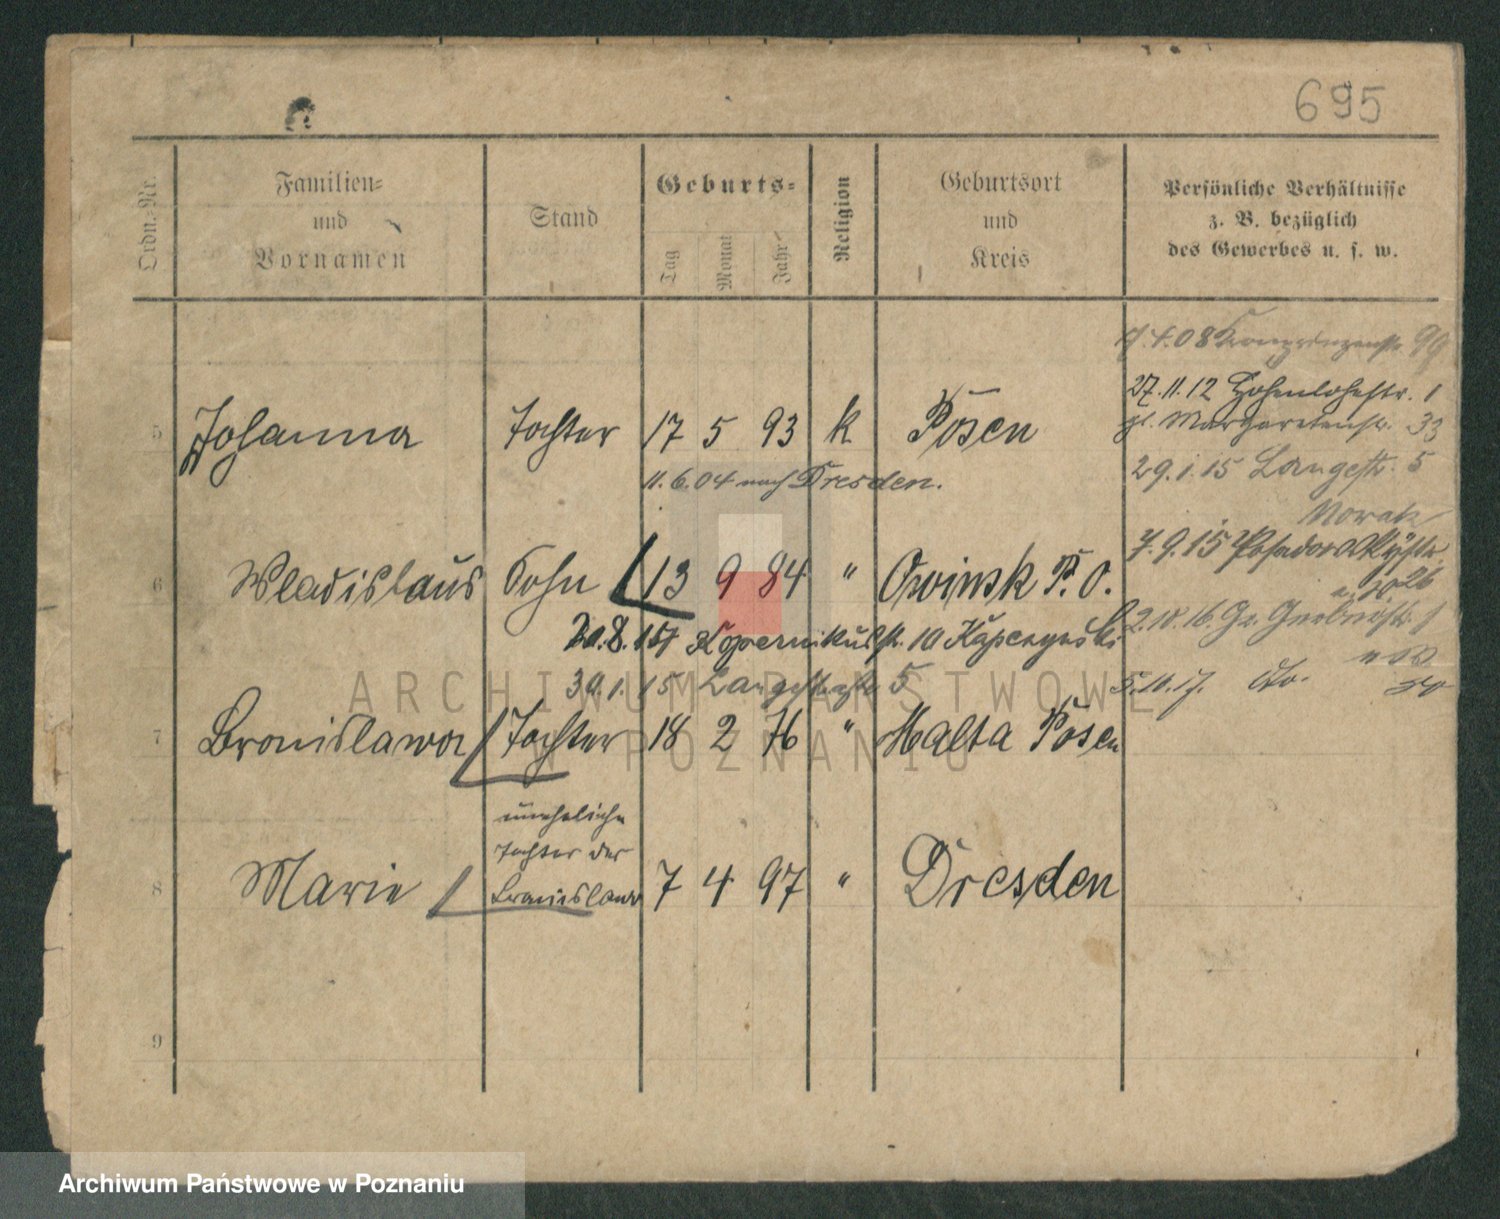 695
Ordn.-Nr.
Familien-
und
Vornamen
Stand
Geburts-
Tag
Monat
Jahr
Religion
Geburtsort
und
Kreis
Persönliche Verhältnisse
z. B. bezüglich
des Gewerbes u. s. w.
08 Kronprinzenstr. 99
27.11.12 Hohenlohestr. 1
Margaretenstr. 33
29.1.15 Langestr. 5
5 Johanna Tochter 17 5 93 k Posen
11.6.04 nach Dresden.
7.9.15
6 Wladislaus Sohn 13 9 84 " Owinsk P. O.
Kopernikusstr. 10 Kapczynski
2.10.16 Gr.
30.1.15 Langestraße 5
5.10.17. do.
7 Bronislawa Tochter 18 2 76 " Malta Posen
8 Marie uneheliche
Tochter der
Bronislawa 7 4 97 " Dresden
9
ARCHIWUM PAŃSTWOWE
W POZNANIU
Archiwum Państwowe w Poznaniu